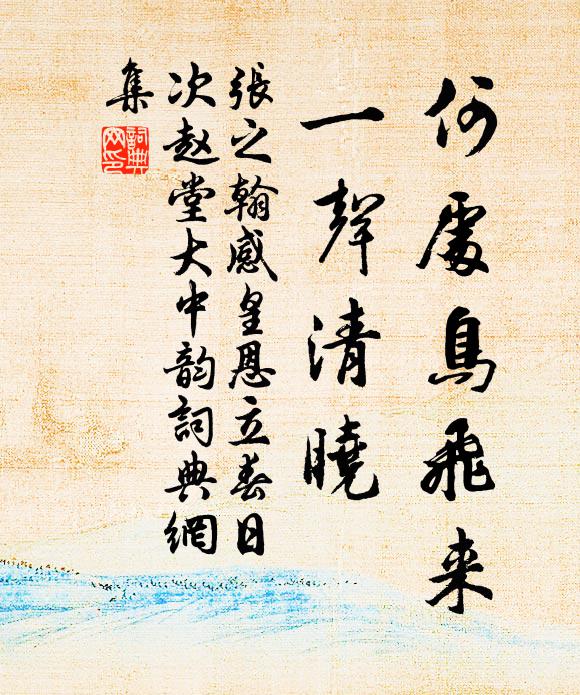 何處鳥飛来
一聲清曉
張之翰感皇恩立春日
次赵堂大中韵詞典網
集
詞典
网印